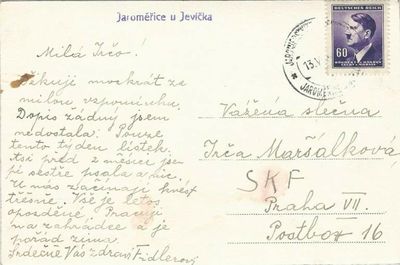 Jaroměřice u Jevíčka
DEUTSCHES REICH
60
BÖHMEN U. MÄHREN
Milá Irčo!
Děkuji mockrát za
milou vzpomínku.
Dopis žádný jsem
nedostala. Pouze
tento týden lístek.
Asi před 2 měsíce jsem
psala a nic.
U nás začínají kvést
třešně. Vše je letos
opožděné. Pracuji
na zahrádce a je
pořád zima.
Srdečně Vás zdraví Fidlerovi
Vážená slečna
Irča Maršálková
SKF
Praha VII.
Postbox 16